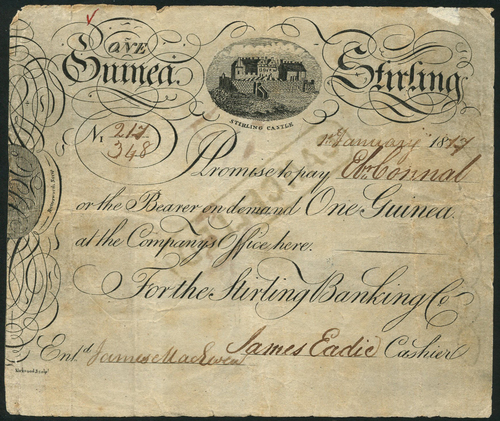 ONE
Guinea. Stirling
STIRLING CASTLE
No. 217/348 1st January 18
Promise to pay Ebr Connal
or the Bearer on demand One Guinea.
at the Company's Office here.
For the Stirling Banking Co
Entd. James MacEwen James Eadie Cashier